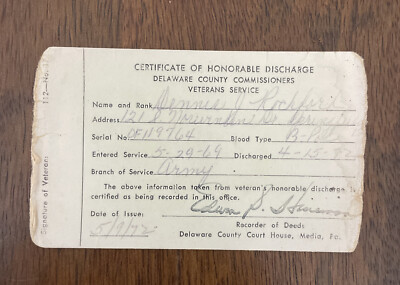 CERTIFICATE OF HONORABLE DISCHARGE
DELAWARE COUNTY COMMISSIONERS
VETERANS SERVICE
Name and Rank Dennis J
Address 121 S
Serial No. Blood Type B-Pos
Entered Service 5-29-69 Discharged 4-15-
Branch of Service Army
The above information taken from veteran's honorable discharge is
certified as being recorded in this office.
Date of Issue: Edwin S.
5/9/72 Recorder of Deeds
Delaware County Court House, Media, Pa.
Signature of Veteran: